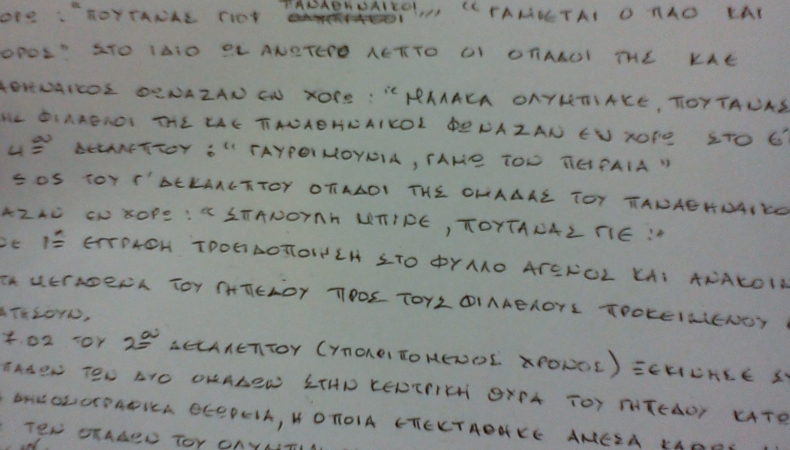 ΠΑΝΑΘΗΝΑΙΚΟΙ,,,
ΟΡΩ: "ΠΟΥΤΑΝΑΣ ΓΙΟΙ " ΓΑΜΙΕΤΑΙ Ο ΠΑΟ ΚΑΙ
ΟΡΟΣ" ΣΤΟ ΙΔΙΟ ΩΣ ΑΝΩΤΕΡΩ ΛΕΠΤΟ ΟΙ ΟΠΑΔΟΙ ΤΗΣ ΚΑΕ
ΑΘΗΝΑΙΚΟΣ ΦΩΝΑΖΑΝ ΕΝ ΧΟΡΩ: "ΜΑΛΑΚΑ ΟΛΥΜΠΙΑΚΕ, ΠΟΥΤΑΝΑΣ
ΦΙΛΑΘΛΟΙ ΤΗΣ ΚΑΕ ΠΑΝΑΘΗΝΑΙΚΟΣ ΦΩΝΑΖΑΝ ΕΝ ΧΟΡΩ ΣΤΟ 6
4ου ΔΕΚΑΛΕΠΤΟΥ: "ΓΑΥΡΟΙ ΜΟΥΝΙΑ, ΓΑΜΩ ΤΟΝ ΠΕΙΡΑΙΑ"
5:05 ΤΟΥ Γ' ΔΕΚΑΛΕΠΤΟΥ ΟΠΑΔΟΙ ΤΗΣ ΟΜΑΔΑΣ ΤΟΥ ΠΑΝΑΘΗΝΑΙΚΟ
ΑΖΑΝ ΕΝ ΧΟΡΩ: "ΣΠΑΝΟΥΛΗ ΜΠΙΡΕ, ΠΟΥΤΑΝΑΣ ΓΙΕ:"
ΔΕ 1η ΕΓΓΡΑΦΗ ΠΡΟΕΙΔΟΠΟΙΗΣΗ ΣΤΟ ΦΥΛΛΟ ΑΓΩΝΟΣ ΚΑΙ ΑΝΑΚΟΙΝ
ΤΑ ΜΕΓΑΦΩΝΑ ΤΟΥ ΓΗΠΕΔΟΥ ΠΡΟΣ ΤΟΥΣ ΦΙΛΑΘΛΟΥΣ ΠΡΟΚΕΙΜΕΝΟΥ
ΑΤΗΣΟΥΝ.
7:02 ΤΟΥ 2ου ΔΕΚΑΛΕΠΤΟΥ (ΥΠΟΛΕΙΠΟΜΕΝΟΣ ΧΡΟΝΟΣ) ΞΕΚΙΝΗΣΕ ΣΥ
ΠΑΔΩΝ ΤΩΝ ΔΥΟ ΟΜΑΔΩΝ ΣΤΗΝ ΚΕΝΤΡΙΚΗ ΘΥΡΑ ΤΟΥ ΓΗΠΕΔΟΥ ΚΑΤΩ
ΔΗΜΟΣΙΟΓΡΑΦΙΚΑ ΘΕΩΡΕΙΑ, Η ΟΠΟΙΑ ΕΠΕΚΤΑΘΗΚΕ ΑΜΕΣΑ ΚΑΘΩΣ
ΤΩΝ ΟΠΑΔΩΝ ΤΟΥ ΟΛΥΜΠΙΑ